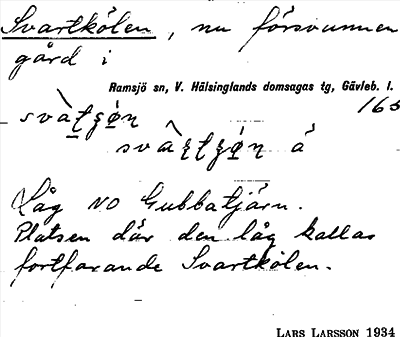 Svartkölen, nu försvunnen
gård i
Ramsjö sn, V. Hälsinglands domsagas tg, Gävleb. l.
165
Låg NO Gubbatjärn.
Platsen där den låg kallas
fortfarande Svartkölen.
LARS LARSSON 1934